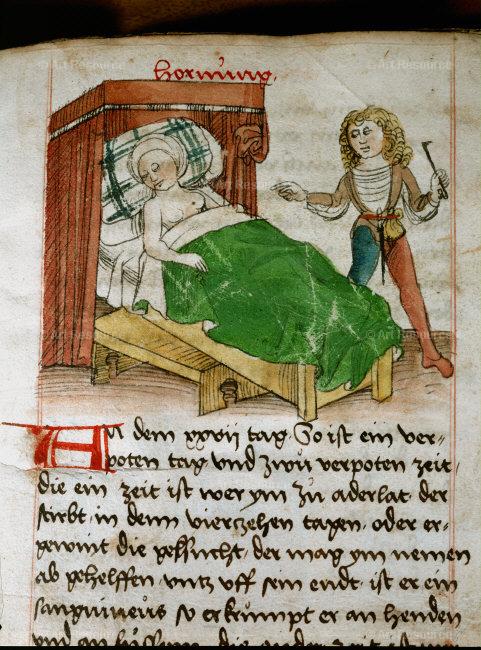 hornung
An dem xxvii tag So ist ein ver-
poten tag vnd zwu verpoten zeit
die ein zeit ist wer ym zu aderlat der
stirbt in dem vierczehen tagen oder er-
gewint die gelsucht der mag ym nemen
ab gehelffen vntz vff sein endt ist er ein
sangwineus so erkrumpt er an henden
vnd an fussen die ander zeit ist wer
© Art Resource